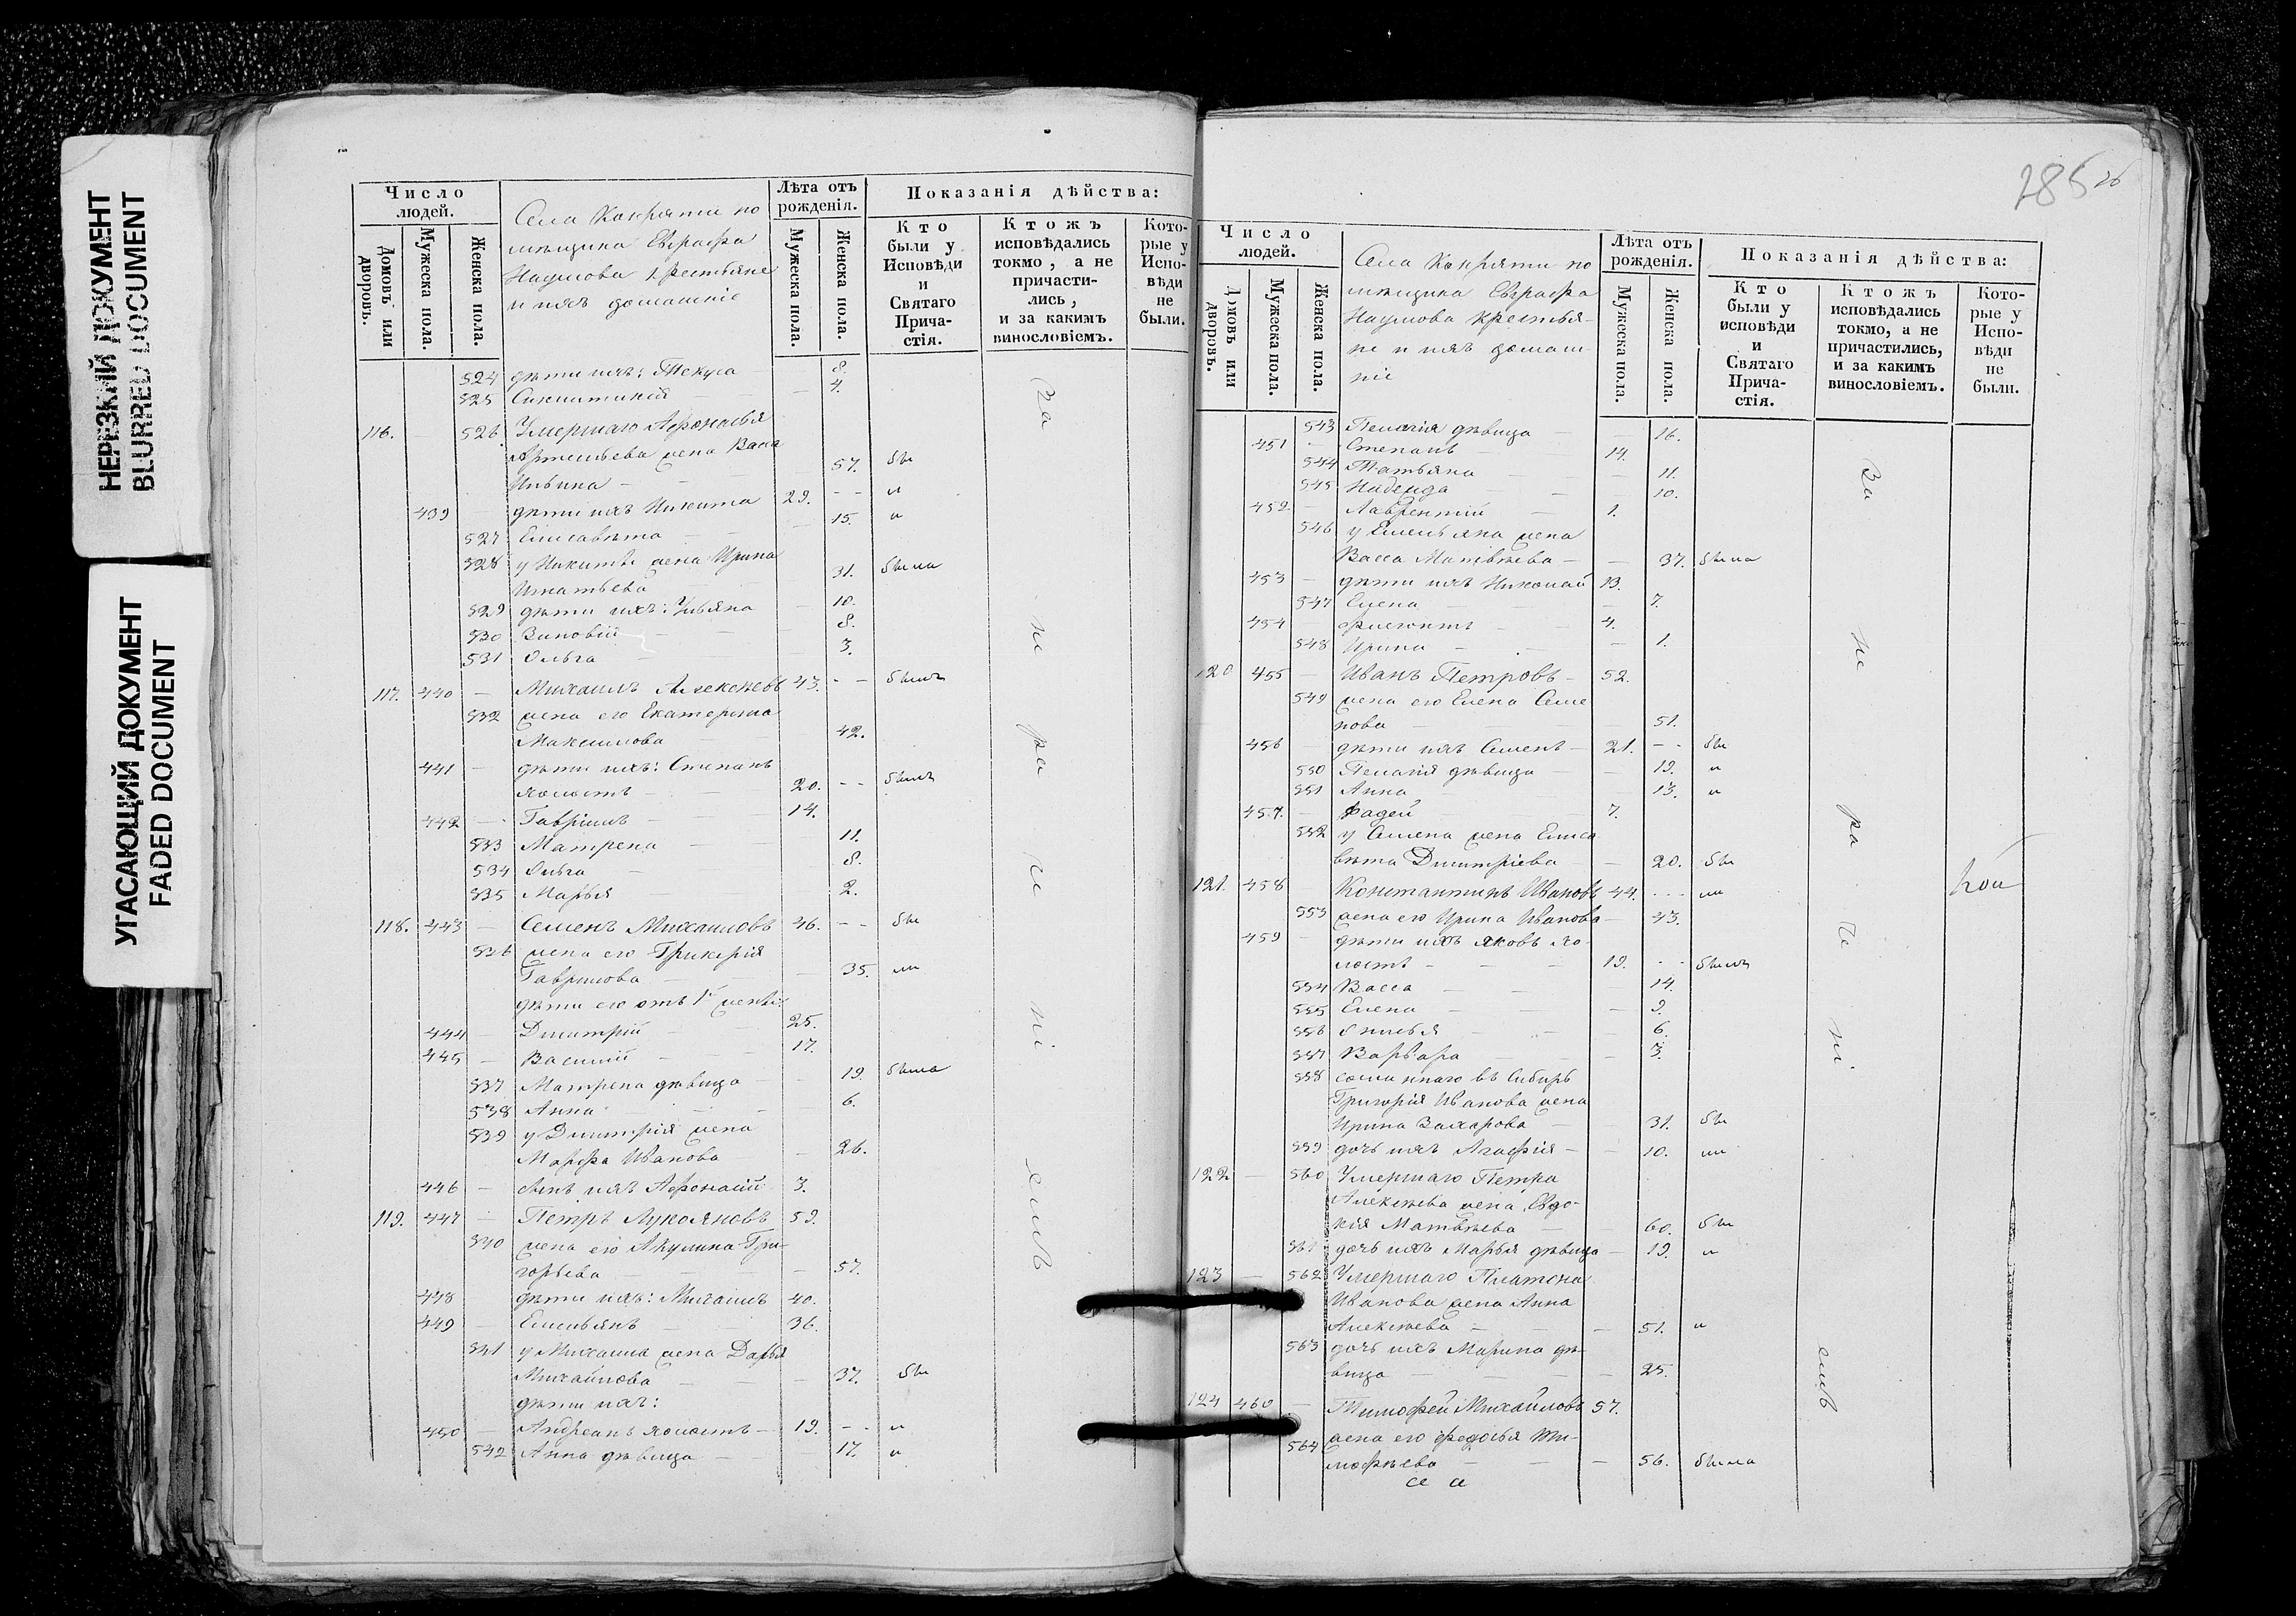 НЕРЕЗКИЙ ДОКУМЕНТ
BLURRED DOCUMENT
УГАСАЮЩИЙ ДОКУМЕНТ
FADED DOCUMENT
Число людей.
Домовъ или дворовъ.
Мужеска пола.
Женска пола.
Села Кокряти по
мѣщика Евграфа
Наумова крестьяне
и ихъ домашніе
Лѣта отъ рожденія.
Мужеска пола.
Женска пола.
Показанія дѣйства:
Кто были у Исповѣди и Святаго Прича-стія.
Ктожъ исповѣдались токмо, а не причасти-лись, и за какимъ винословіемъ.
Кото-рые у Испо-вѣди не были.
524 дѣти ихъ: Текуса 8.
525 4.
116. 526 Умершаго Афонасья
Артемьева жена Васса
57. бы
439 дѣти ихъ Никита 29. - - и
527 Елисавѣта 15. и
528 у Никиты жена Ирина
Игнатьева 31. была
529 дѣти ихъ: Ульяна 10.
530 Зиновія 8.
531 Ольга 3.
117. 440 Михаилъ Алексѣевъ 43. - - былъ
532 жена его Екатерина
Максимова 42.
441 дѣти ихъ: Степанъ
холостъ 20. - - былъ
442 Гавріилъ 14.
533 Матрена 11.
534 Ольга 8.
535 Марья 2.
118. 443 Семенъ Михаиловъ 46. - - бы
536 жена его Гликерія
Гаврилова 35. ли
дѣти его отъ 1й жены:
444 Дмитрій 25.
445 Василій 17.
537 Матрена дѣвица 19. была
538 Анна 6.
539 у Дмитрія жена
Марфа Иванова 26.
446 сынъ ихъ Афонасій 3.
119. 447 Петръ Лукояновъ 59.
540 жена его Акулина Гри-
горьева 57.
448 дѣти ихъ: Михаилъ 40.
449 Емельянъ 36.
541 у Михаила жена Дарья
Михайлова 37. бы
дѣти ихъ:
450 Андреанъ холостъ 19. - - и
542 Анна дѣвица 17. и
за не ра че ні емъ
285
26
Число людей.
Домовъ или дворовъ.
Мужеска пола.
Женска пола.
Села Кокряти по
мѣщика Евграфа
Наумова крестья-
не и ихъ домаш-
ніе
Лѣта отъ рожденія.
Мужеска пола.
Женска пола.
Показанія дѣйства:
Кто были у исповѣди и Святаго Прича-стія.
Ктожъ исповѣдались токмо, а не причастились, и за какимъ винословіемъ.
Кото-рые у Испо-вѣди не были.
543 Пелагія дѣвица 16.
451 Степанъ 14.
544 Татьяна 11.
545 Надежда 10.
452 Лаврентій 1.
546 у Емельяна жена
Васса Матвѣева 37. была
453 дѣти ихъ Николай 13.
547 Елена 7.
454 4.
548 Ирина 1.
120 455 Иванъ Петровъ 52.
549 жена его Елена Семе
нова 51.
456 дѣти ихъ Семенъ 21. - - бы
550 Пелагія дѣвица 19. и
551 Анна 13. и
457. Фадей 7.
552 у Семена жена Елиса
вѣта Дмитріева 20. бы
121. 458 Константинъ Ивановъ 44. - - ли
553 жена его Ирина Иванова 43.
459 дѣти ихъ Яковъ хо-
лостъ 19. - - былъ
554 Васса 14.
555 Елена 9.
556 6.
557 Варвара 3.
558 сосланнаго въ Сибирь
Григорія Иванова жена
Ирина Захарова 31. бы
559 дочь ихъ Агафія 10. ли
122 560 Умершаго Петра
Алексѣева жена Евдо-
кія Матвѣева 60. бы
561 дочь ихъ Марья дѣвица 19. и
123 562 Умершаго Платона
Иванова жена Анна
Алексѣева 51. и
563 дочь ихъ Марина дѣ-
вица 25.
124 460 Тимофей Михайловъ 57.
564 жена его Федосья Ти-
мофѣева 56. была
за не ра че ні емъ